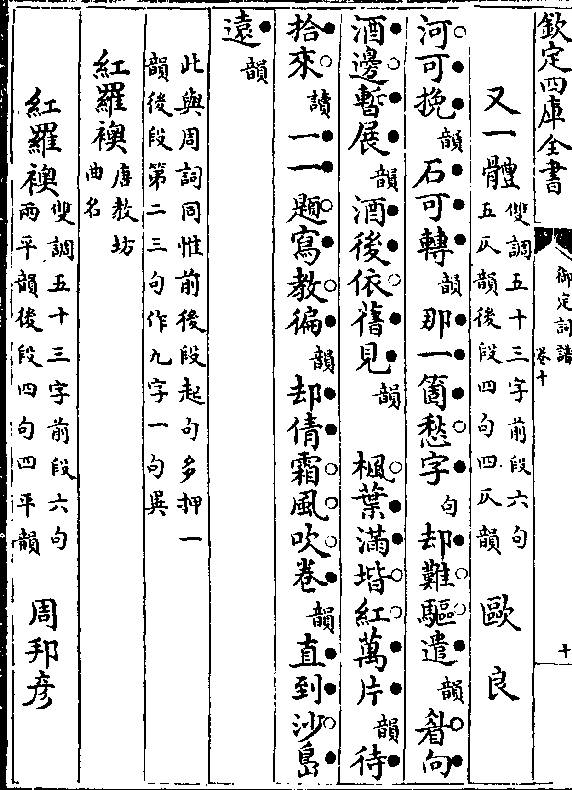 欽定四庫全書
御定詞譜
卷十
十
又一體
雙調五十三字前段六句
五仄韻後段四句四仄韻
歐良
河可挽韻石可轉韻那一箇愁字句却難驅遣韻眉向
酒邊暫展韻酒後依舊見韻 楓葉滿堦紅萬片韻待
拾來讀一一題寫教徧韻却倩霜風吹卷韻直到沙島
遠韻
此與周詞同惟前後段起句多押一
韻後段第二三句作九字一句異
紅羅襖
唐教坊
曲名
紅羅襖
雙調五十三字前段六句
兩平韻後段四句四平韻
周邦彥